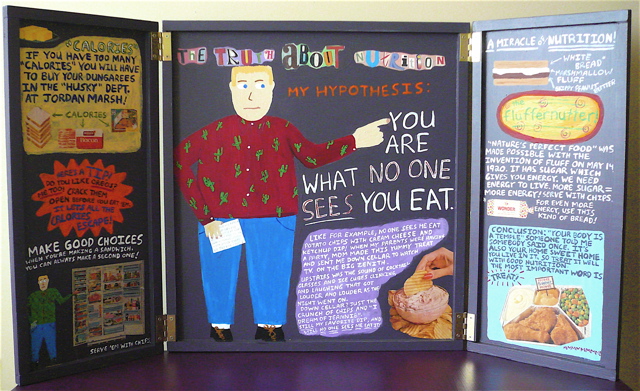 "CALORIES"
IF YOU HAVE TOO MANY
"CALORIES" YOU WILL HAVE
TO BUY YOUR DUNGAREES
IN THE "HUSKY" DEPT.
AT JORDAN MARSH!
CALORIES
HERE'S A TIP!
DO YOU LIKE CHIPS?
ME TOO! CRACK THEM
OPEN BEFORE YOU EAT
IT LETS ALL THE
CALORIES
ESCAPE!
MAKE GOOD CHOICES
WHEN YOU'RE MAKING A SANDWICH,
YOU CAN ALWAYS MAKE A SECOND ONE!
SERVE 'EM WITH CHIPS.
THE TRUTH about NUTRITION
MY HYPOTHESIS:
YOU
ARE
WHAT NO ONE
SEES YOU EAT.
LIKE FOR EXAMPLE, NO ONE SEES ME EAT
POTATO CHIPS WITH CREAM CHEESE AND
KETCHUP DIP! WHEN MY PARENTS WERE HAVING
A PARTY, MOM MADE THIS YUMMY TREAT
AND SENT ME DOWN CELLAR TO WATCH
TV ON THE BIG ZENITH.
UPSTAIRS WAS THE SOUND OF COCKTAIL
GLASSES AND ICE CUBES CLINKING
AND LAUGHING THAT GOT
LOUDER AND LOUDER AS THE
NIGHT WENT ON.
DOWN CELLAR: JUST THE
CRUNCH OF CHIPS AND "I
DREAM OF JEANNIE".
STILL MY FAVORITE DIP, AND
STILL NO ONE SEES ME EAT IT!
A MIRACLE of NUTRITION!
WHITE
BREAD
MARSHMALLOW
FLUFF
PEANUT BUTTER
The
Fluffernutter!
"NATURE'S PERFECT FOOD" WAS
MADE POSSIBLE WITH THE
INVENTION OF FLUFF ON MAY 14
1920. IT HAS SUGAR WHICH
GIVES YOU ENERGY. WE NEED
ENERGY TO LIVE. MORE SUGAR =
MORE ENERGY! SERVE WITH CHIPS.
WONDER
FOR EVEN MORE
ENERGY, USE THIS
KIND OF BREAD!
CONCLUSION: "YOUR BODY IS
A TEMPLE" SOMEONE TOLD ME
SOMEBODY SAID ONCE. IT IS
ALSO YOUR HOME SWEET HOME.
YOU LIVE IN IT, SO TREAT IT
WITH GOOD NUTRITION.
THE MOST IMPORTANT WORD IS
"TREAT".